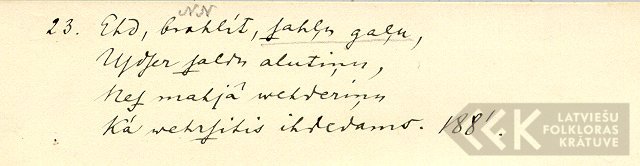 NN
23. Ehd, brahlit, ſahļu gaļu,
Uſdſer ſaldu alutiņu,
Neſ mahjâ wehderiņu
Kâ wehrſitis ihdedams. 1881.
LATVIEŠU
FOLKLORAS
KRĀTUVE